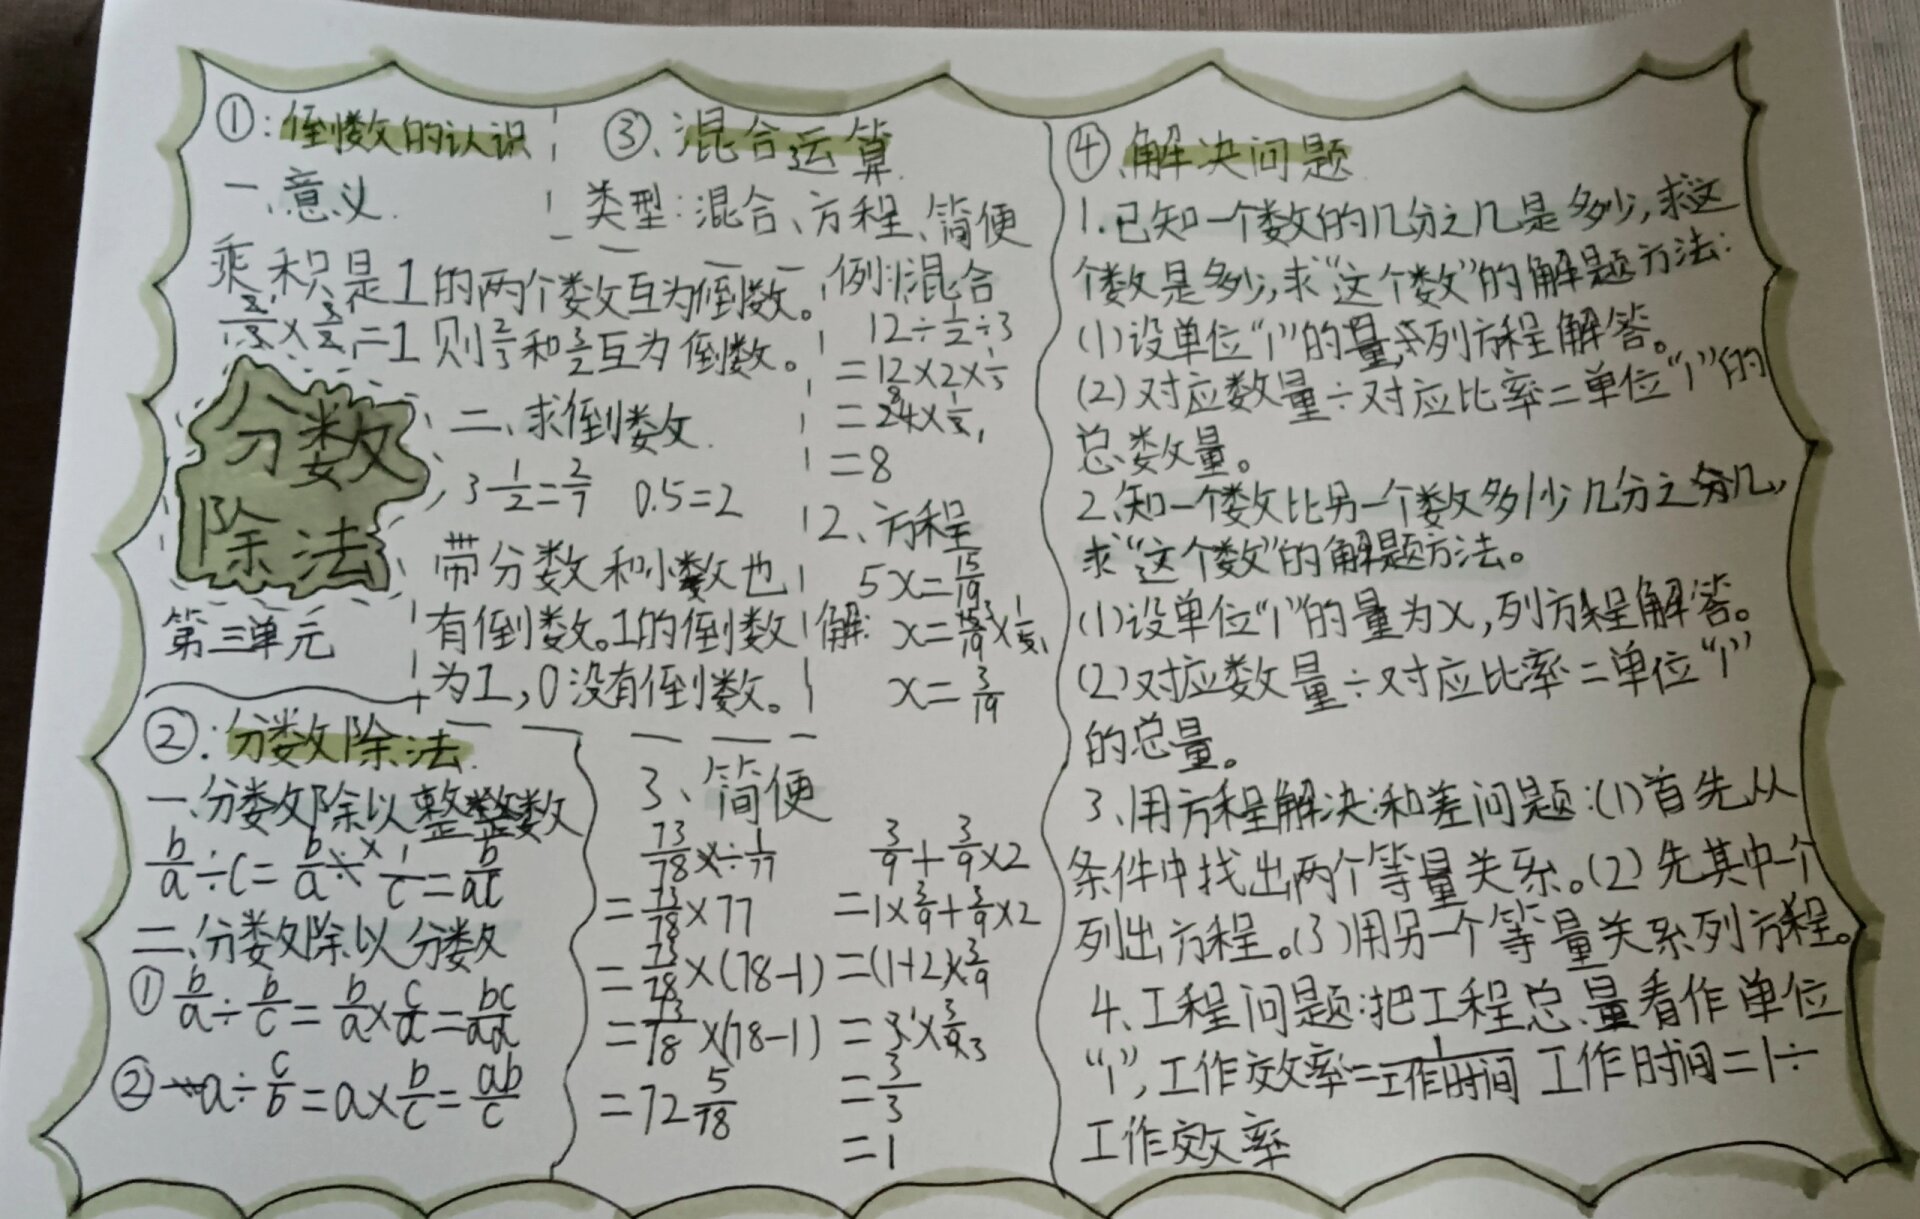 ①:倒数的认识
一、意义.
乘积是1的两个数互为倒数。
2/3×3/2=1 则2/3和3/2互为倒数。
分数
除法
第三单元
二、求倒数.
3 1/2=2/7 0.5=2
带分数和小数也
有倒数。1的倒数
为1,0没有倒数。
②:分数除法.
一、分数除以整数
b/a÷c=b/a×1/c=b/ac
二、分数除以分数
①b/a÷b/c=b/a×c/d=bc/ad
②a÷c/b=a×b/c=ab/c
③、混合运算.
类型:混合、方程、简便
例:1混合
12÷1/2÷3
=12×2×1/3
=24×1/3
=8
2、方程
5x=15/19
解: x=15/19×1/5
x=3/19
3、简便
73/78÷1/77
=73/78×77
=73/78×(78-1)
=73/78×(78-1)
=72 5/78
3/9+3/9×2
=1×3/9+3/9×2
=(1+2)×3/9
=3×3/9
=3/3
=1
④、解决问题
1.已知一个数的几分之几是多少,求这
个数是多少,求“这个数”的解题方法:
(1)设单位“1”的量,列方程解答。
(2)对应数量÷对应比率=单位“1”的
总数量。
2、知一个数比另一个数多/少几分之几,
求“这个数”的解题方法。
(1)设单位“1”的量为x,列方程解答。
(2)对应数量÷对应比率=单位“1”
的总量。
3、用方程解决:和差问题:(1)首先从
条件中找出两个等量关系。(2)先其中一个
列出方程。(3)用另一个等量关系列方程。
4、工程问题:把工程总量看作单位
“1”,工作效率=1/工作时间 工作时间=1÷
工作效率